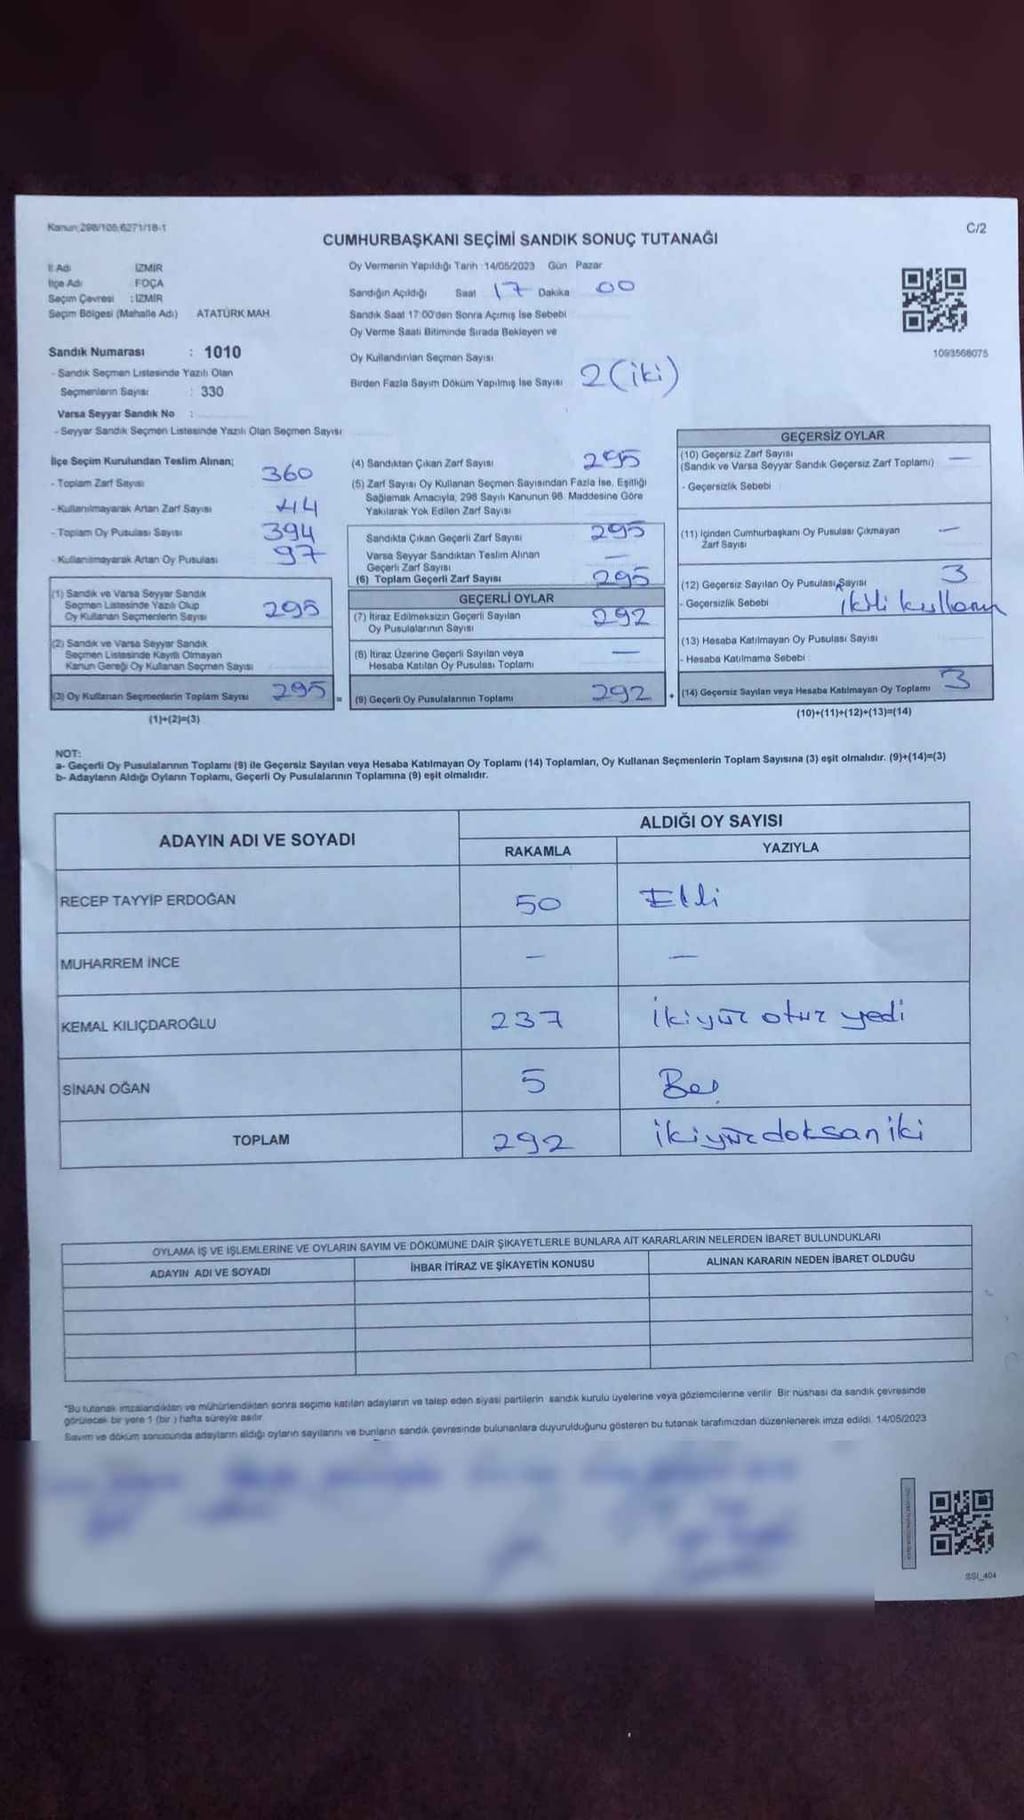 Kanun:298/105,6271/18-1
C/2
CUMHURBAŞKANI SEÇİMİ SANDIK SONUÇ TUTANAĞI
İl Adı İZMİR
İlçe Adı FOÇA
Seçim Çevresi : İZMİR
Seçim Bölgesi (Mahalle Adı) ATATÜRK MAH.
Sandık Numarası : 1010
- Sandık Seçmen Listesinde Yazılı Olan
Seçmenlerin Sayısı : 330
Varsa Seyyar Sandık No :
- Seyyar Sandık Seçmen Listesinde Yazılı Olan Seçmen Sayısı
Oy Vermenin Yapıldığı Tarih 14/05/2023 Gün Pazar
Sandığın Açıldığı Saat 17 Dakika 00
Sandık Saat 17:00'den Sonra Açımış İse Sebebi
Oy Verme Saati Bitiminde Sırada Bekleyen ve
Oy Kullandırılan Seçmen Sayısı
Birden Fazla Sayım Döküm Yapılmış İse Sayısı 2 (iki)
1093568075
İlçe Seçim Kurulundan Teslim Alınan;
- Toplam Zarf Sayısı 360
- Kullanılmayarak Artan Zarf Sayısı 44
- Toplam Oy Pusulası Sayısı 394
- Kullanılmayarak Artan Oy Pusulası 97
(1) Sandık ve Varsa Seyyar Sandık
Seçmen Listesinde Yazılı Olup
Oy Kullanan Seçmenlerin Sayısı 295
(2) Sandık ve Varsa Seyyar Sandık
Seçmen Listesinde Kayıtlı Olmayan
Kanun Gereği Oy Kullanan Seçmen Sayısı
(3) Oy Kullanan Seçmenlerin Toplam Sayısı 295 =
(1)+(2)=(3)
(4) Sandıktan Çıkan Zarf Sayısı 295
(5) Zarf Sayısı Oy Kullanan Seçmen Sayısından Fazla İse, Eşitliği
Sağlamak Amacıyla, 298 Sayılı Kanunun 98. Maddesine Göre
Yakılarak Yok Edilen Zarf Sayısı
Sandıkta Çıkan Geçerli Zarf Sayısı 295
Varsa Seyyar Sandıktan Teslim Alınan
Geçerli Zarf Sayısı —
(6) Toplam Geçerli Zarf Sayısı 295
GEÇERLİ OYLAR
(7) İtiraz Edilmeksizin Geçerli Sayılan
Oy Pusulalarının Sayısı 292
(8) İtiraz Üzerine Geçerli Sayılan veya
Hesaba Katılan Oy Pusulası Toplamı —
(9) Geçerli Oy Pusulalarının Toplamı 292 +
GEÇERSİZ OYLAR
(10) Geçersiz Zarf Sayısı —
(Sandık ve Varsa Seyyar Sandık Geçersiz Zarf Toplamı)
- Geçersizlik Sebebi
(11) İçinden Cumhurbaşkanı Oy Pusulası Çıkmayan —
Zarf Sayısı
(12) Geçersiz Sayılan Oy Pusulası Sayısı 3
- Geçersizlik Sebebi ikili kullanım
(13) Hesaba Katılmayan Oy Pusulası Sayısı
- Hesaba Katılmama Sebebi
(14) Geçersiz Sayılan veya Hesaba Katılmayan Oy Toplamı 3
(10)+(11)+(12)+(13)=(14)
NOT:
a- Geçerli Oy Pusulalarının Toplamı (9) ile Geçersiz Sayılan veya Hesaba Katılmayan Oy Toplamı (14) Toplamları, Oy Kullanan Seçmenlerin Toplam Sayısına (3) eşit olmalıdır. (9)+(14)=(3)
b- Adayların Aldığı Oyların Toplamı, Geçerli Oy Pusulalarının Toplamına (9) eşit olmalıdır.
ADAYIN ADI VE SOYADI
ALDIĞI OY SAYISI
RAKAMLA YAZIYLA
RECEP TAYYİP ERDOĞAN 50 Elli
MUHARREM İNCE — —
KEMAL KILIÇDAROĞLU 237 ikiyüz otuz yedi
SİNAN OĞAN 5 Beş
TOPLAM 292 ikiyüzdoksaniki
OYLAMA İŞ VE İŞLEMLERİNE VE OYLARIN SAYIM VE DÖKÜMÜNE DAİR ŞİKAYETLERLE BUNLARA AİT KARARLARIN NELERDEN İBARET BULUNDUKLARI
ADAYIN ADI VE SOYADI İHBAR İTİRAZ VE ŞİKAYETİN KONUSU ALINAN KARARIN NEDEN İBARET OLDUĞU
"Bu tutanak imzalandıktan ve mühürlendikten sonra seçime katılan adayların ve talep eden siyasi partilerin sandık kurulu üyelerine veya gözlemcilerine verilir. Bir nüshası da sandık çevresinde
görülecek bir yere 1 (bir ) hafta süreyle asılır.
Sayım ve döküm sonucunda adayların aldığı oyların sayılarını ve bunların sandık çevresinde bulunanlara duyurulduğunu gösteren bu tutanak tarafımızdan düzenlenerek imza edildi. 14/05/2023
SSI_404